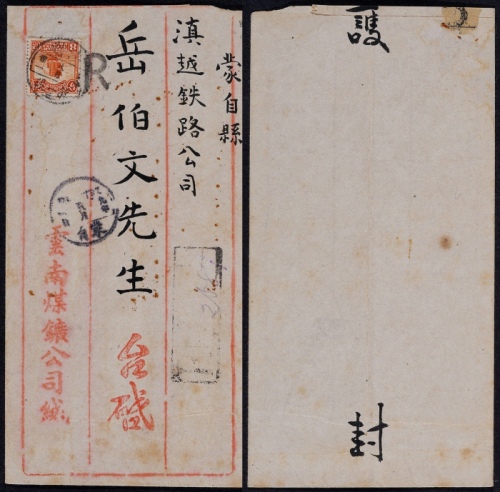 蒙自縣
滇越鉄路公司
岳伯文先生
台啟
雲南煤鑛公司緘
R
護
封